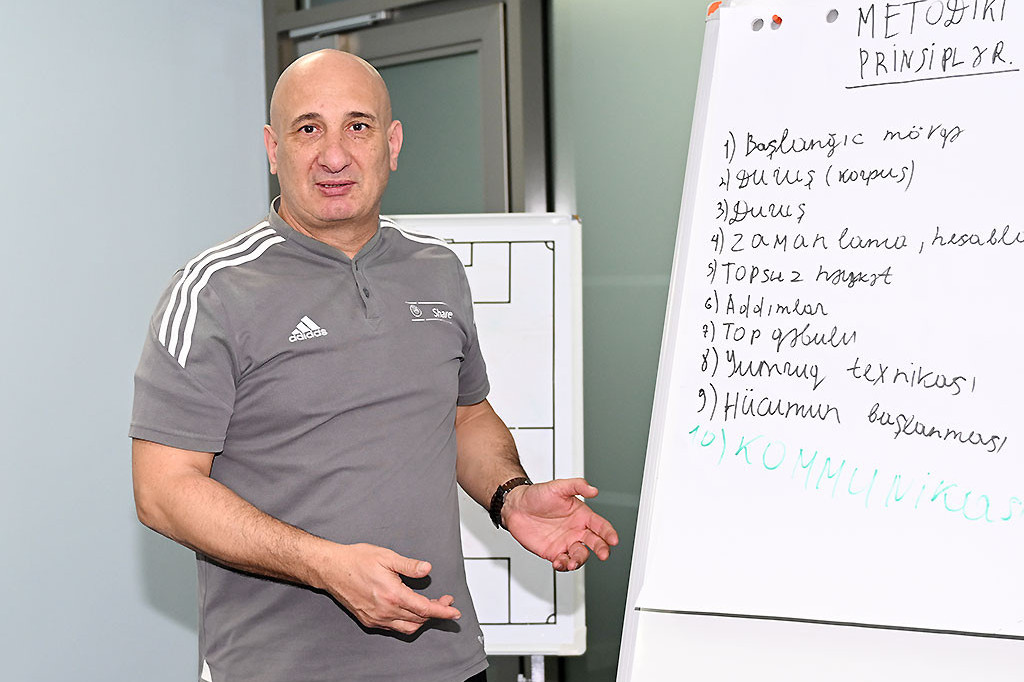 METODIKI
PRINSIPLƏR.
1) Başlanğıc mövqe
2) Duruş (korpus)
3) Duruş
4) Zamanlama, hesabla
5) TOPSUZ hərəkət
6) Addımlar
7) TOP qəbulu
8) Yumruq texnikası
9) Hücumun başlanması
10) KOMMUNiKAS
adidas
Share